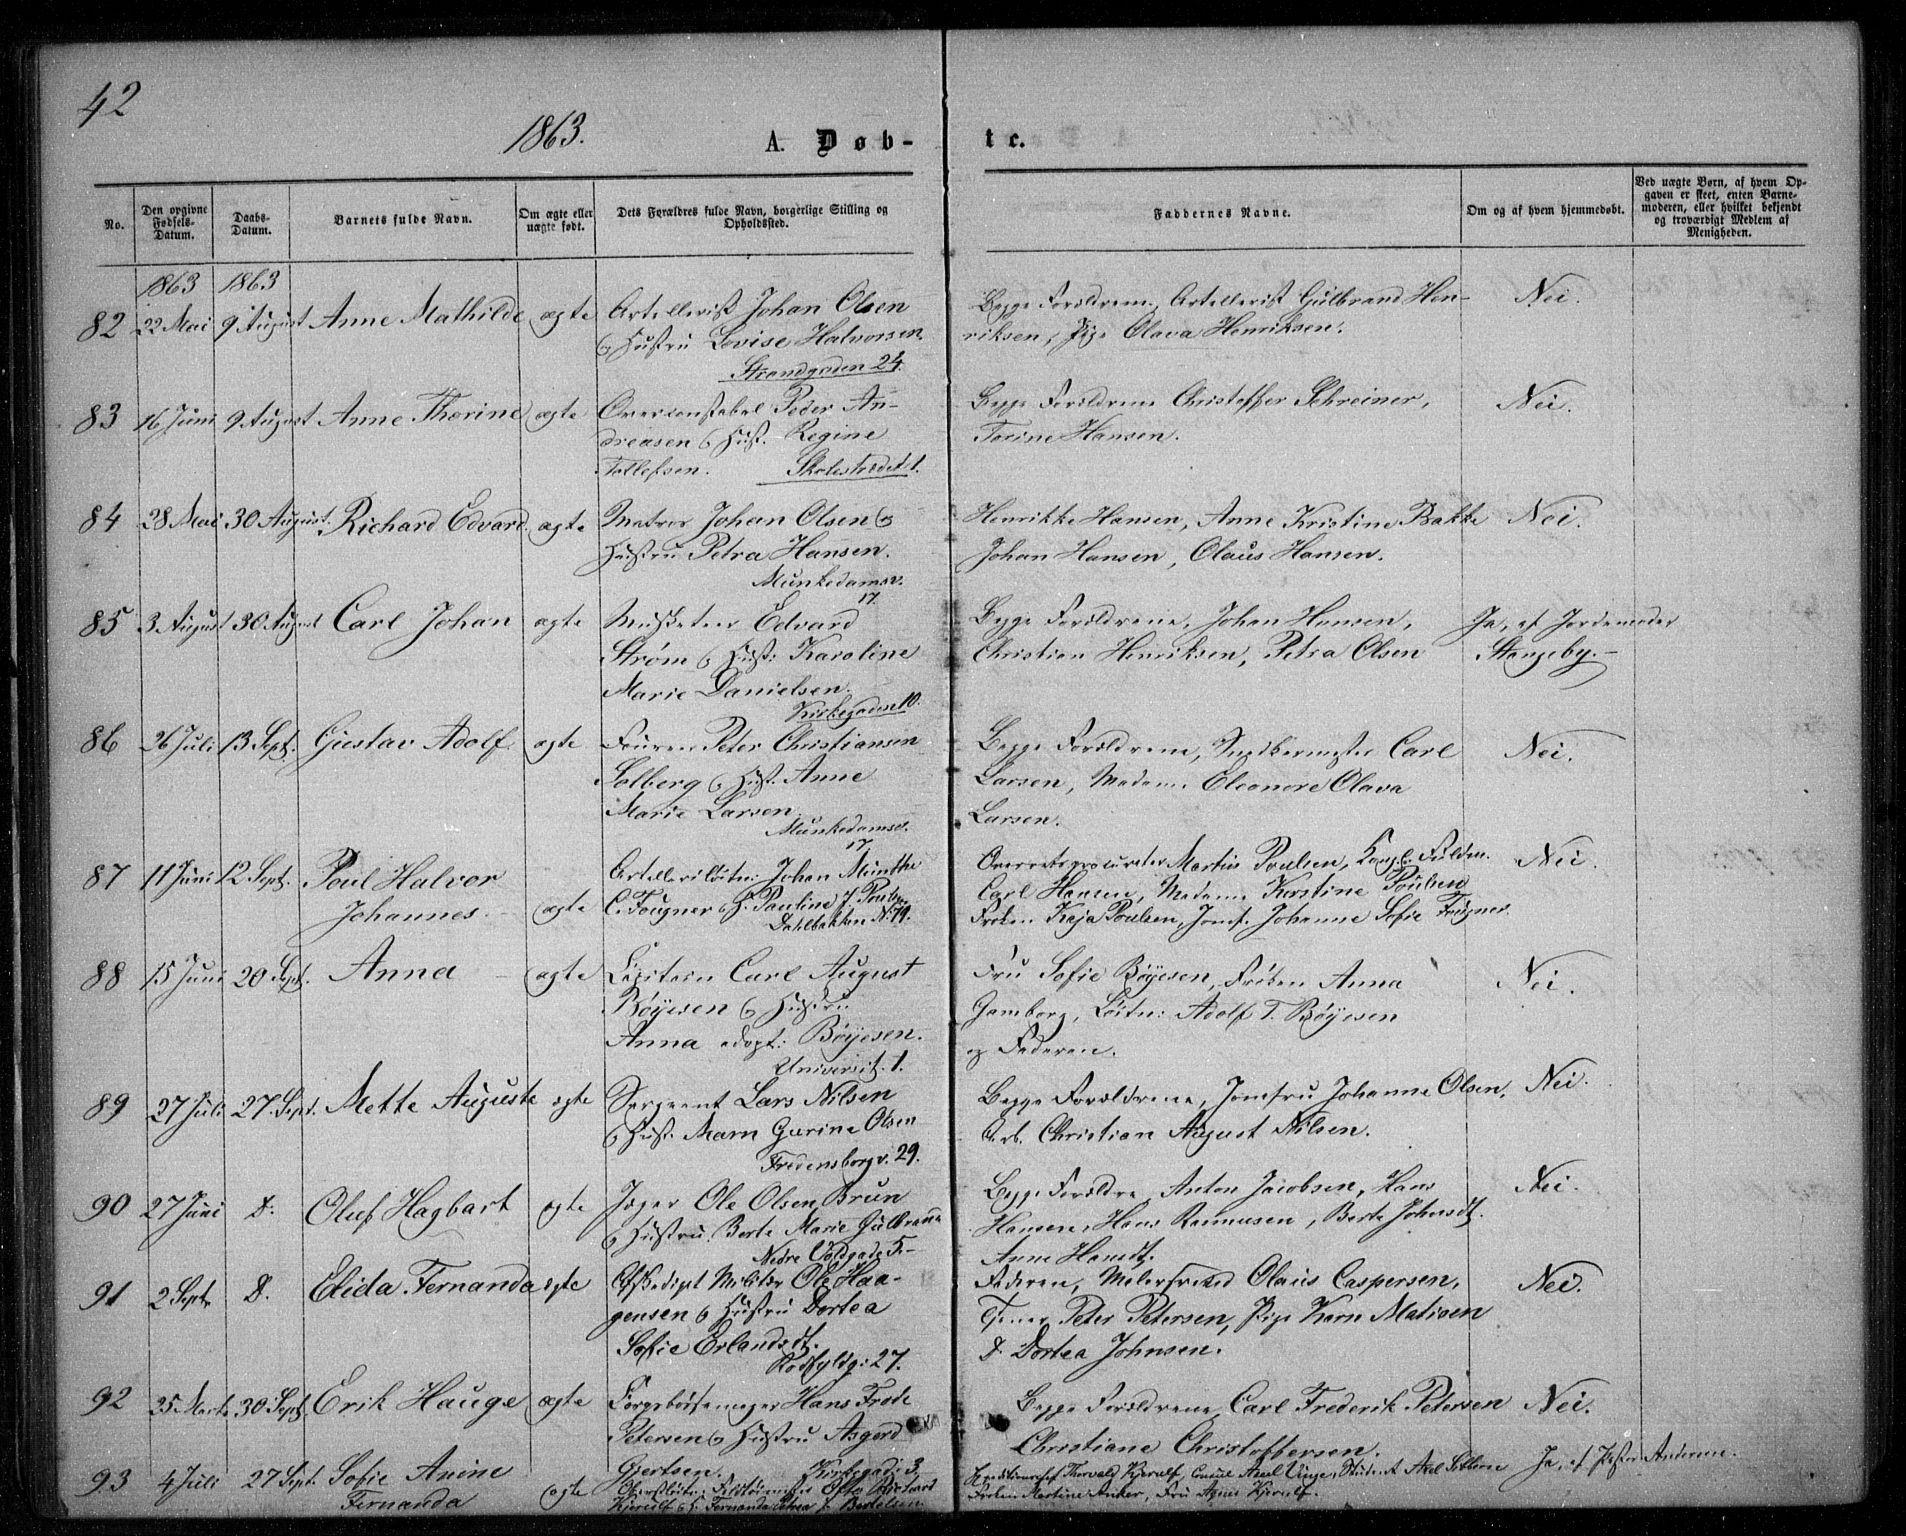 42
1863.
A. Døb-
te.
No.
Den opgivne Fødsels-Datum.
Daabs-Datum.
Barnets fulde Navn.
Om ægte eller uægte født.
Dets Forældres fulde Navn, borgerlige Stilling og Opholdssted.
Faddernes Navne.
Om og af hvem hjemmedøbt.
Ved uægte Børn, af hvem Opgaven er skeet, enten Barnemoderen, eller hvilket bekjendt og troværdigt Medlem af Menigheden.
1863 1863
82 22 Mai 9 August Anne Mathilde ægte Artellerist Johan Olsen
& Hustru Lovise Halvorsen.
Strandgaden 24.
Begge Forældrene, Artellerist Gulbrand Hen-
riksen, Pige Olava Henriksen.
Nei.
83 16 Juni 9 August Anne Thorine ægte Overconstabel Peder An-
dreasen & Hust. Regine
Tollefsen. Skolestrædet 1.
Begge Forældrene Christoffer Schreiner,
Torine Hansen.
Nei.
84 28 Mai 30 August. Richard Edvard ægte Matros Johan Olsen &
Hustru Petra Hansen.
Munkedamsv.
17.
Henrikke Hansen, Anne Kristine Bakke
Johan Hansen, Olaus Hansen.
Nei.
85 3 August 30 August Carl Johan ægte Musketeer Edvard
Strøm & Hust: Karoline
Marie Danielsen.
Kirkegaden 10.
Begge Forældrene, Johan Hansen,
Christian Henriksen, Petra Olsen
Ja, af Jordemoder
Stangeby.-
86 26 Juli 13 Sept. Gustav Adolf. ægte Foureer Peter Christiansen
Solberg & Hust. Anne
Marie Larsen.
Munkedamsv.
17.
Begge Forældrene, Snedkermester Carl
Larsen, Madam. Eleonore Olava
Larsen.
Nei.
87 11 Juni 12 Sept. Poul Halvor
Johannes. - ægte
Artelleriløtn: Johan Munthe
C. Fougner & H. Pauline J. Poulsen
Dahlbakken N: 79.
Overretsprocurator Martin Poulsen, Kongl. Fuldm.
Carl Hansen, Madame Kirstine Poulsen
Frøken Kaja Poulsen, Jomf. Johanne Sofie Fougner.
Nei
88 15 Juni 20 Sept. Anna - ægte Capitain Carl August
Böyesen & Hustru
Anna adopt: Böyesen.
Universit. 1.
Fru Sofie Böyesen, Frøken Anna
Gamborg, Löitn: Adolf T. Böyesen
og Faderen.
Nei.
89 27 Juli 27. Sept. Mette Auguste ægte Sergeant Lars Nilsen
& Hust. Maren Gurine Olsen
Fredensborgv. 29.
Begge Forældrene, Jomfru Johanne Olsen,
Arb. Christian August Nilsen.
Nei.
90 27 Juni D. Oluf Hagbart ægte Jæger Ole Olsen Brun
& Hustru Berte Marie
Nedre Voldgade 5.-
Begge Forældre, Anton Jacobsen, Hans
Hansen, Hans Rasmusen, Berte Johnsdt.
Anne Hansdt.
Nei.
91 2 Sept. D. Elida Fernanda ægte Afskediget Militær Ole Haa-
gensen & Hustru Dortea
Sofie Erlandsdt.
Rodfyldg: 27.
Faderen, Malersvend Olaus Caspersen,
Tjener Peter Petersen, Pige Karn Matisen
D. Dortea Johnsen.
Nei.
92 25 Marts 30 Sept. Erik Hauge ægte Corpsbøssemager Hans Frode
Petersen & Hustru Asgerd
Gjertsen. Kirkegad: 3
Begge Forældrene, Carl Frederik Petersen
Christiane Christoffersen.
Nei.
93 4 Juli 27 Sept. Sofie Anine
Fernanda ægte
Oberstløitn:
Kjerulf & H. Fernanda Petrea f. Bertelsen.
Expeditionschef Thorvald Kjerulf, Consul Axel Vinge, Student Axel
Frøken Martine Anker, Fru Agnes Kjerulf.
Ja, af Pastor Andersen.